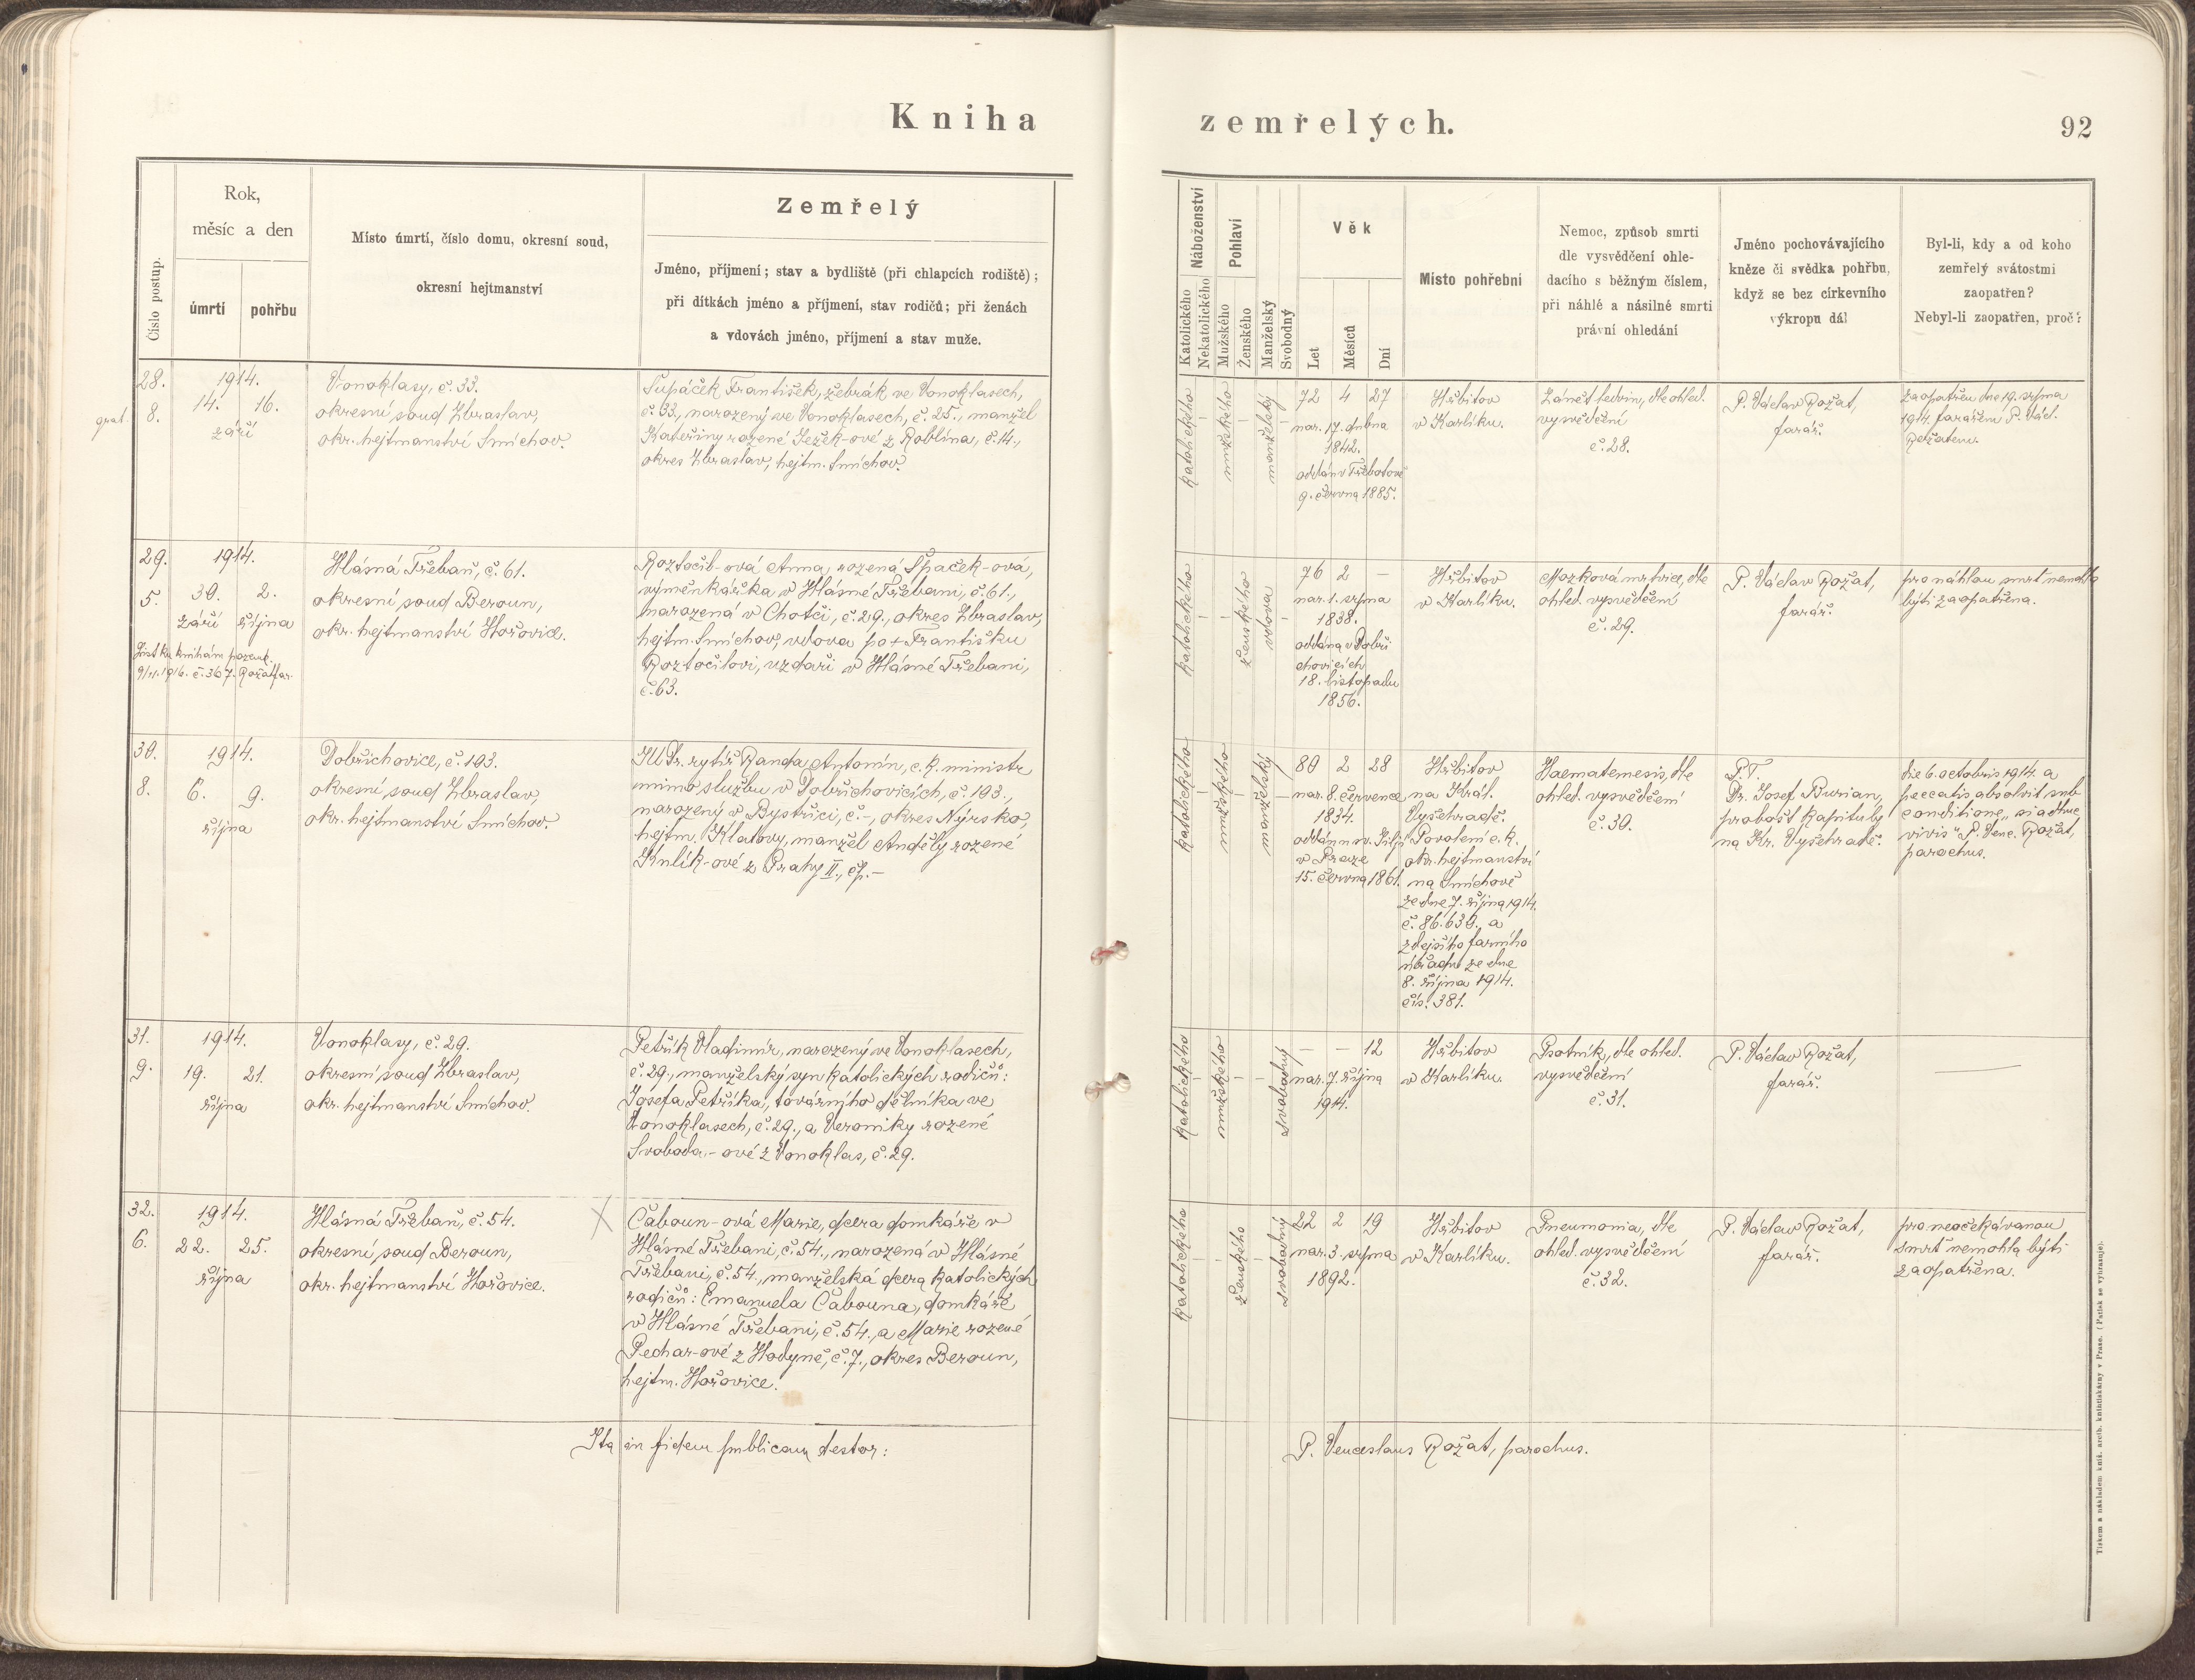 Kniha
zemřelých.
92
Číslo postup.
Rok,
měsíc a den
úmrtí
pohřbu
Místo úmrtí, číslo domu, okresní soud,
okresní hejtmanství
Zemřelý
Jméno, příjmení; stav a bydliště (při chlapcích rodiště);
při dítkách jméno a příjmení, stav rodičů; při ženách
a vdovách jméno, příjmení a stav muže.
Náboženství
Katolického
Nekatolického
Pohlaví
Mužského
Ženského
Manželský
Svobodný
Věk
Let
Měsíců
Dní
Místo pohřební
Nemoc, způsob smrti
dle vysvědčení ohle-
dacího s běžným číslem,
při náhlé a násilné smrti
právní ohledání
Jméno pochovávajícího
kněze či svědka pohřbu,
když se bez církevního
výkropu dál
Byl-li, kdy a od koho
zemřelý svátostmi
zaopatřen?
Nebyl-li zaopatřen, proč?
28.
grat. 8.
1914.
14. 16.
září
Vonoklasy, č. 33.
okresní soud Zbraslav,
okr. hejtmanství Smíchov.
Ťupáček František, žebrák ve Vonoklasech,
č. 33., narozený ve Vonoklasech, č. 25., manžel
Kateřiny rozené Ježek-ové z Roblína, č. 14.,
okres Zbraslav, hejtm. Smíchov.
katolického
–
mužského
–
manželský
–
72 4 27
nar. 17. dubna
1842.
oddán v Třebotově
9. června 1885.
Hřbitov
v Karlíku.
Zánět ledvin, dle ohled.
vysvědčení
č. 28.
P. Václav Rožat,
farář.
Zaopatřen dne 19. srpna
1914 farářem P. Václ.
Rožatem.
29.
5.
1914.
30. 2.
září října
List ku knihám pozemk.
9/11. 1916. č. 367. Rožat far.
Hlásná Třebaň, č. 61.
okresní soud Beroun,
okr. hejtmanství Hořovice.
Roztočil-ová Anna, rozená Špaček-ová,
výměnkářka v Hlásné Třebani, č. 61.,
narozená v Chotči, č. 29., okres Zbraslav,
hejtm. Smíchov, vdova po + Františku
Roztočilovi, uzdaři v Hlásné Třebani,
č. 63.
katolického
–
–
ženského
vdova
–
76 2 –
nar. 1. srpna
1838.
oddána v Dobři
chovicích
18. listopadu
1856.
Hřbitov
v Karlíku.
Mozková mrtvice, dle
ohled. vysvědčení
č. 29.
P. Václav Rožat,
farář.
pro náhlou smrt nemohla
býti zaopatřena.
30.
8.
1914.
6. 9.
října
Dobřichovice, č. 193.
okresní soud Zbraslav,
okr. hejtmanství Smíchov.
JUDr. rytíř Randa Antonín, c. k. ministr
mimo službu v Dobřichovicích, č. 193.,
narozený v Bystřici, č. –, okres Nýrsko,
hejtm. Klatovy, manžel Anděly rozené
Knlík-ové z Prahy II., čp. –
katolického
–
mužského
–
manželský
–
80 2 28
nar. 8. července
1834.
oddán u sv. Jiljí
v Praze
15. června 1861.
Hřbitov
na Král.
Vyšehradě.
Povolení c. k.
okr. hejtmanství
na Smíchově
ze dne 7. října 1914.
č. 86.630., a
zdejšího farního
úřadu ze dne
8. října 1914.
čís. 381.
Haematemesis, dle
ohled. vysvědčení
č. 30.
P. T.
Dr. Josef Burian,
probošt kapituly
na Kr. Vyšehradě.
die 6. octobris 1914. a
peccatis absolvit sub
conditione „si adhuc
vivis“ P. Venc. Rožat,
parochus.
31.
9.
1914.
19. 21.
října
Vonoklasy, č. 29.
okresní soud Zbraslav,
okr. hejtmanství Smíchov.
Petřík Vladimír, narozený ve Vonoklasech,
č. 29., manželský syn katolických rodičů:
Josefa Petříka, továrního dělníka ve
Vonoklasech, č. 29., a Veroniky rozené
Svoboda-ové z Vonoklas, č. 29.
katolického
–
mužského
–
–
svobodný
– – 12
nar. 7. října
1914.
Hřbitov
v Karlíku.
Psotník, dle ohled.
vysvědčení
č. 31.
P. Václav Rožat,
farář.
—
32.
6.
1914.
22. 25.
října
Hlásná Třebaň, č. 54.
okresní soud Beroun,
okr. hejtmanství Hořovice.
X
Čaboun-ová Marie, dcera domkáře v
Hlásné Třebani, č. 54., narozená v Hlásné
Třebani, č. 54., manželská dcera katolických
rodičů: Emanuela Čabouna, domkáře
v Hlásné Třebani, č. 54., a Marie rozené
Pechar-ové z Hodyně, č. 7., okres Beroun,
hejtm. Hořovice.
katolického
–
–
ženského
–
svobodný
22 2 19
nar. 3. srpna
1892.
Hřbitov
v Karlíku.
Pneumonia, dle
ohled. vysvědčení
č. 32.
P. Václav Rožat,
farář.
pro neočekávanou
smrt nemohla býti
zaopatřena.
Ita in fidem publicam testor:
P. Venceslaus Rožat, parochus.
Tiskem a nákladem kníž. arcib. knihtiskárny v Praze. (Patisk se vyhrazuje).